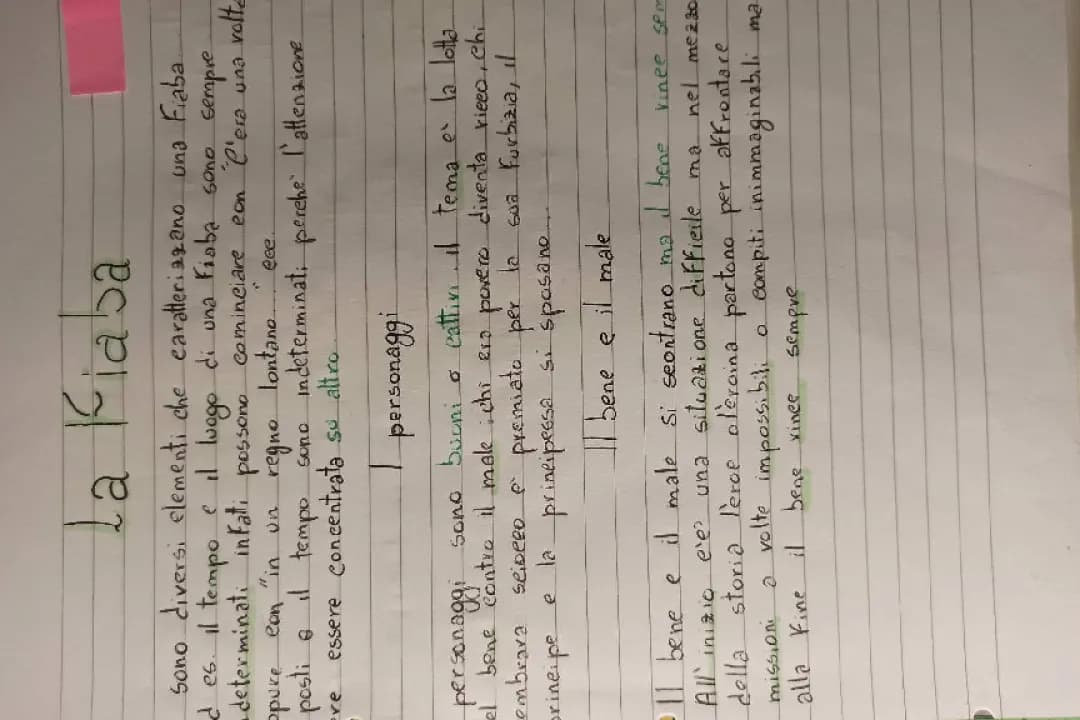 La Fiaba
sono diversi elementi che caratterizzano una Fiaba
d es. il tempo e il luogo di una Fiaba sono sempre
determinati infatti possono cominciare con "C'era una volta
ppure con "in un regno lontano...." ecc.
posti e il tempo sono indeterminati perchè l'attenzione
re essere concentrata su altro.
I personaggi
personaggi sono buoni o cattivi. il tema è la lotta
el bene contro il male, chi era povero diventa ricco, chi
embrava sciocco è premiato per la sua furbizia, il
principe e la principessa si sposano...
Il bene e il male
Il bene e il male si scontrano ma il bene vince sem
All'inizio c'è una situazione difficile ma nel mezzo
della storia l'eroe o l'eroina partono per affrontare
missioni a volte impossibili o compiti inimmaginabili ma
alla fine il bene vince sempre